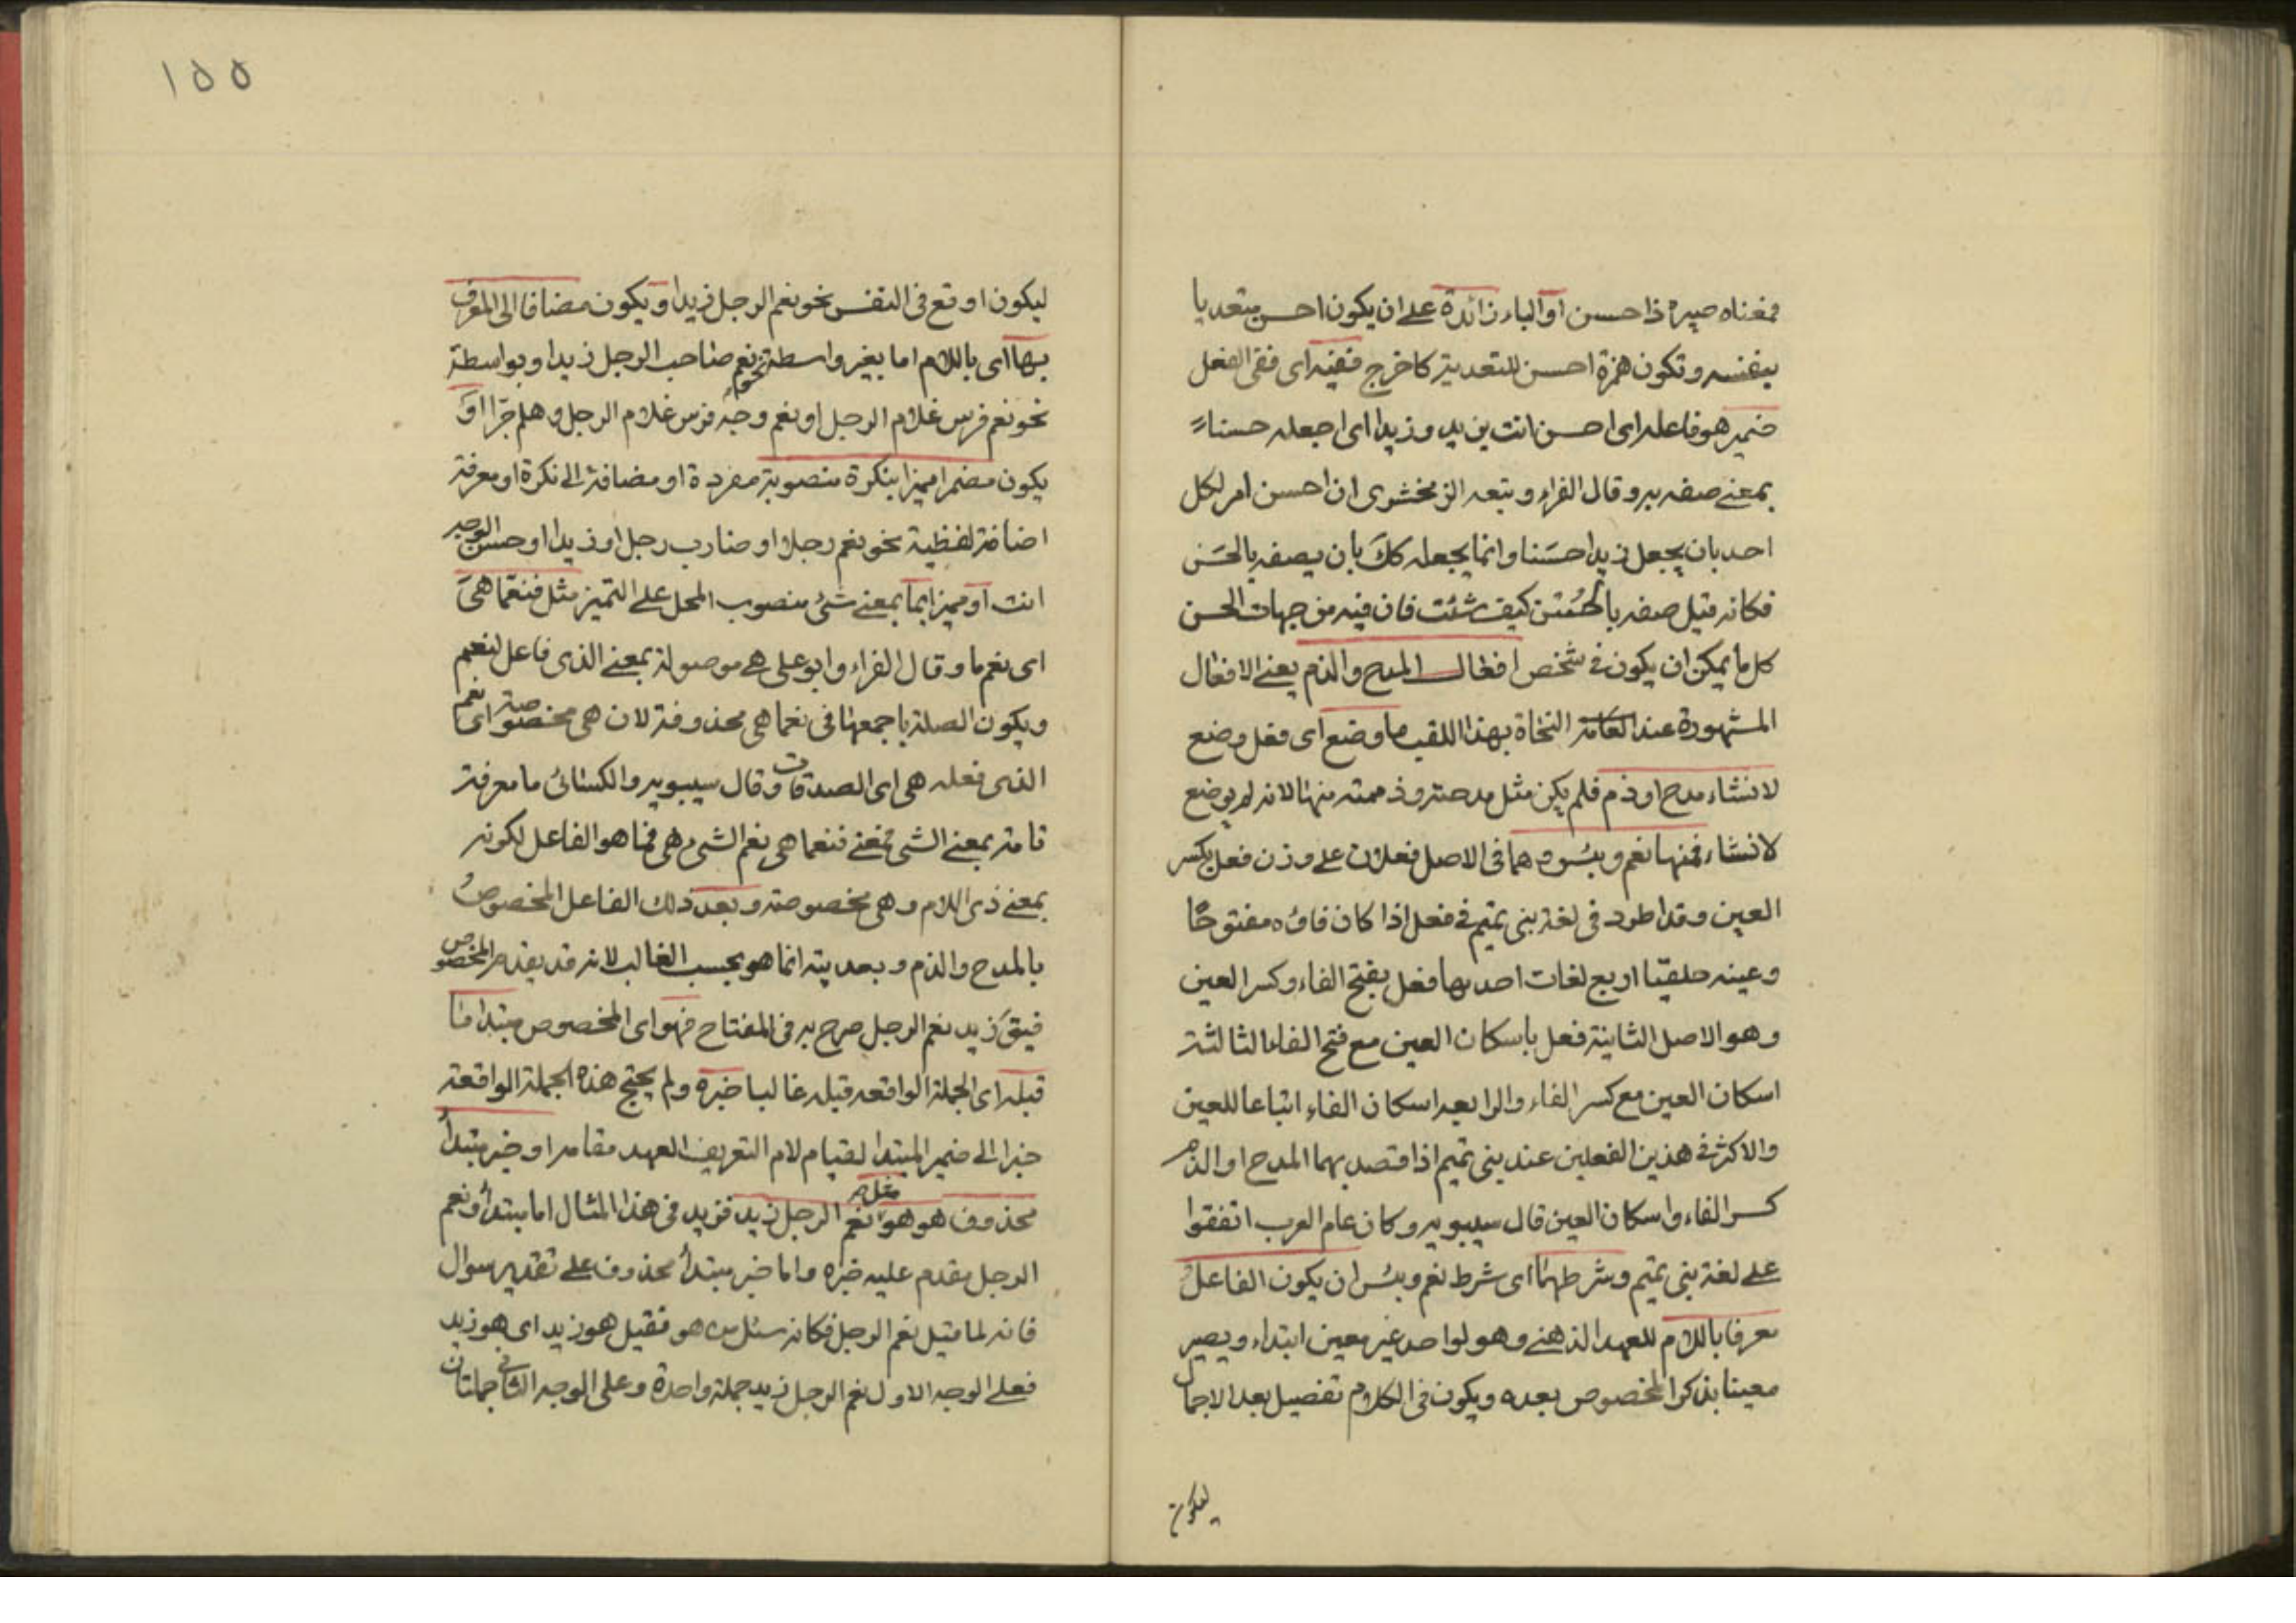 فمعناه صيره ذا حسن او الباء زائدة على ان يكون احسن متعديا
بنفسه وتكون همزة احسن للتعدية كاخرج ففيه اى ففى الفعل
ضمير هو فاعله اى احسن انت بزيد وزيدا اى اجعله حسنا
بمعنى صفه به وقال الفراء وتبعه الزمخشرى ان احسن امر لكل
احد بان يجعل زيدا حسَنا وانما يجعله كك بان يصفه بالحسَن
فكانه قيل صفه بالحُسْن كيف شئت فان فيه من جهات الحسن
كل ما يمكن ان يكون فى شخص افعال المدح والذم يعنى الافعال
المشهورة عند النحاة بهذا اللقب ما وضع اى فعل وضع
لانشاء مدح او ذم فلم يكن مثل مدحته وذممته منها لانه لم يوضع
لانشاء فمنها نعم وبئس وهما فى الاصل فعلان على وزن فعل بكسر
العين وقد اطرد فى لغة بنى تميم فى فعل اذا كان فاؤه مفتوحًا
وعينه حلقيا اربع لغات احديها فعل بفتح الفاء وكسر العين
وهو الاصل الثانية فعل باسكان العين مع فتح الفاء الثالثة
اسكان العين مع كسر الفاء والرابعه اسكان الفاء اتباعا للعين
والاكثر فى هذين الفعلين عند بنى تميم اذا قصد بهما المدح او الذم
كسر الفاء واسكان العين قال سيبويه وكان عام العرب اتفقوا
على لغة بنى تميم وشرطهما اى شرط نعم وبئس ان يكون الفاعل
معرفا باللام للعهد الذهنى وهو لواحد غير معين ابتداء ويصير
معينا بذكر المخصوص بعده ويكون فى الكلام تفصيل بعد الاجمال
ليكون
١٥٥
ليكون اوقع فى النفس نحو نعم الرجل زيد او يكون مضافا الى المعرف
بها اى باللام اما بغير واسطة نحو نعم صاحب الرجل زيد او بواسطة
نحو نعم فرس غلام الرجل او نعم وجه فرس غلام الرجل وهلم جرا او
يكون مضمرا مميزا بنكرة منصوبة مفردة او مضافة الى نكرة او معرفة
اضافة لفظية نحو نعم رجلا او ضارب رجل او زيد او حسن الوجه
انت او مميزا بما بمعنى شئ منصوب المحل على التميز مثل فنعمّا هى
اى نعم ما وقال الفراء وابو على هى موصولة بمعنى الذى فاعل لنعم
ويكون الصلة باجمعها فى نعما هى محذوفة لان هى مخصوصة اى نعم
الذى فعله هى اى الصدقات وقال سيبويه والكسائى ما معرفة
تامة بمعنى الشى فمعنى فنعما هى نعم الشئ هى فما هو الفاعل لكونه
بمعنى ذى اللام وهى مخصوصة وبعد ذلك الفاعل المخصوصُ
بالمدح والذم وبعديته انما هو بحسب الغالب لانه قد يقدم المخصوص
فيق زيد نعم الرجل صرح به فى المفتاح فهو اى المخصوص مبتدا ما
قبله اى الجملة الواقعه قبله غالبا خبره ولم يحتج هذه الجملة الواقعة
خبرا الى ضمير المبتدا لقيام لام التعريف العهد مقامه او خبر مبتدأ
محذوف هو هو مثل نعم الرجل زيد فزيد فى هذا المثال اما مبتدأ ونعم
الرجل مقدم عليه خبره واما خبر مبتدأ محذوف على تقدير سوال
فانه لما قيل نعم الرجل فكانه سئل من هو فقيل هو زيد اى هو زيد
فعلى الوجه الاول نعم الرجل زيد جملة واحدة وعلى الوجه الثانى جملتان